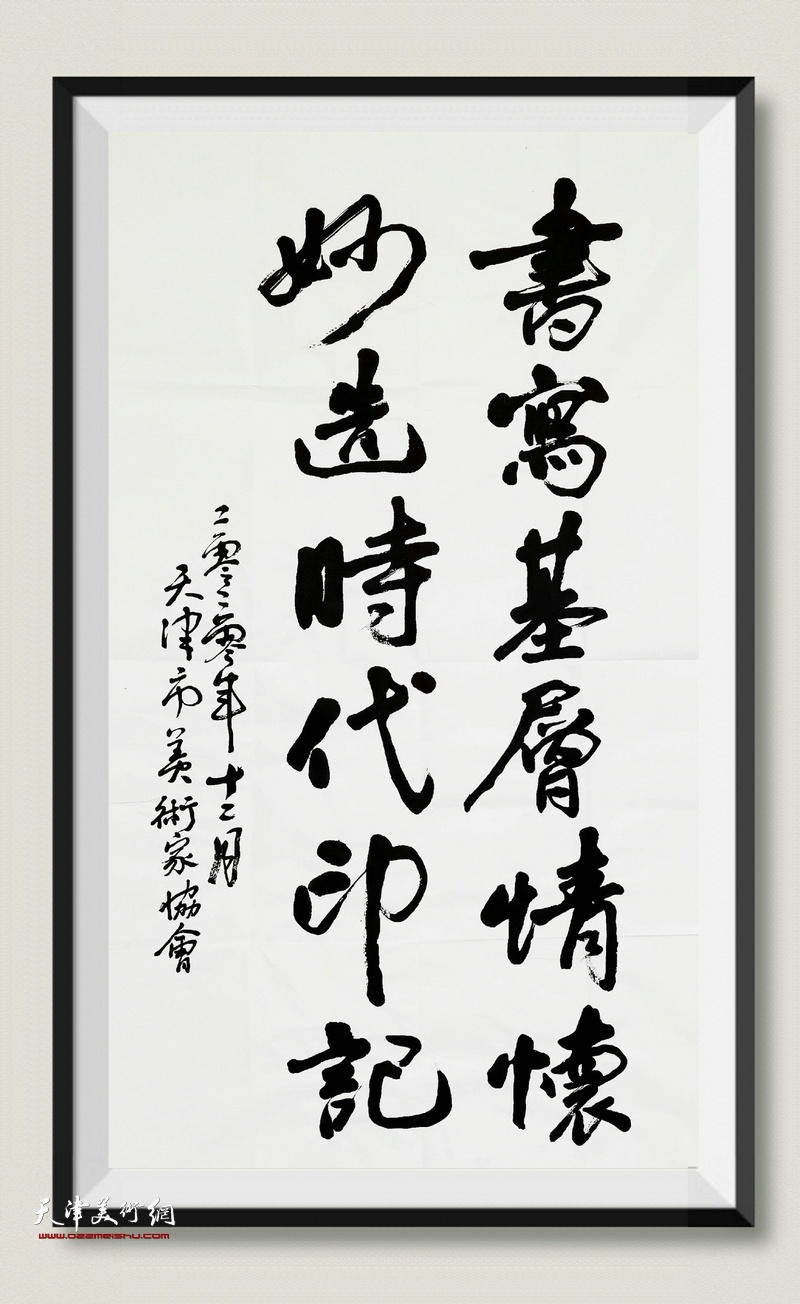 書寫基層情懷
妙造時代印記
二零二零年十二月
天津市美術家協會
天津美術網
www.022meishu.com